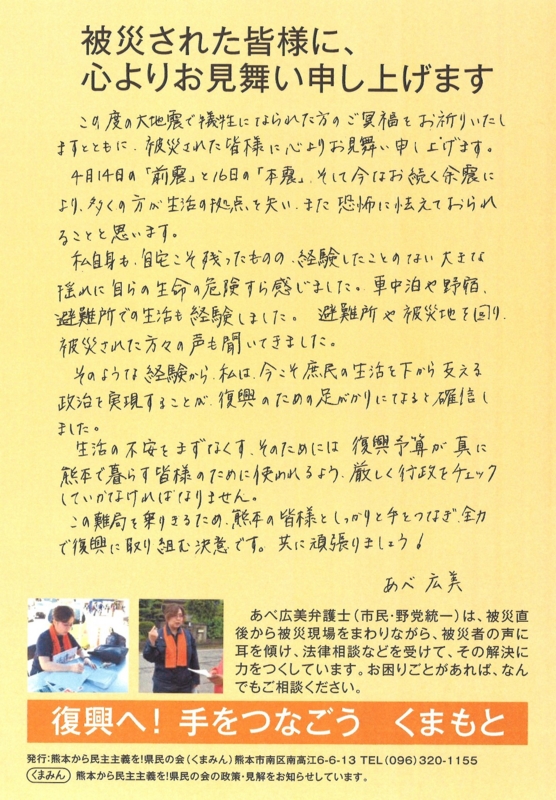 被災された皆様に、
心よりお見舞い申し上げます
この度の大地震で犠牲になられた方のご冥福をお祈りいたし
ますとともに、被災された皆様に心よりお見舞い申し上げます。
4月14日の「前震」と16日の「本震」、そして今なお続く余震に
より、多くの方が生活の拠点を失い、また恐怖に怯えておられ
ることと思います。
私自身も、自宅こそ残ったものの、経験したことのない大きな
揺れに自らの生命の危険すら感じました。車中泊や野宿、
避難所での生活も経験しました。避難所や被災地を回り、
被災された方々の声も聞いてきました。
そのような経験から、私は、今こそ庶民の生活を下から支える
政治を実現することが、復興のための足がかりになると確信し
ました。
生活の不安をまずなくす、そのためには復興予算が真に
熊本で暮らす皆様のために使われるよう、厳しく行政をチェック
していかなければなりません。
この難局を乗りきるため、熊本の皆様としっかりと手をつなぎ、全力
で復興に取り組む決意です。共に頑張りましょう!
あべ 広美
あべ広美弁護士(市民・野党統一)は、被災直
後から被災現場をまわりながら、被災者の声に
耳を傾け、法律相談などを受けて、その解決に
力をつくしています。お困りごとがあれば、なん
でもご相談ください。
復興へ! 手をつなごう くまもと
発行:熊本から民主主義を!県民の会(くまみん) 熊本市南区南高江6-6-13 TEL(096)320-1155
くまみん 熊本から民主主義を!県民の会の政策・見解をお知らせしています。